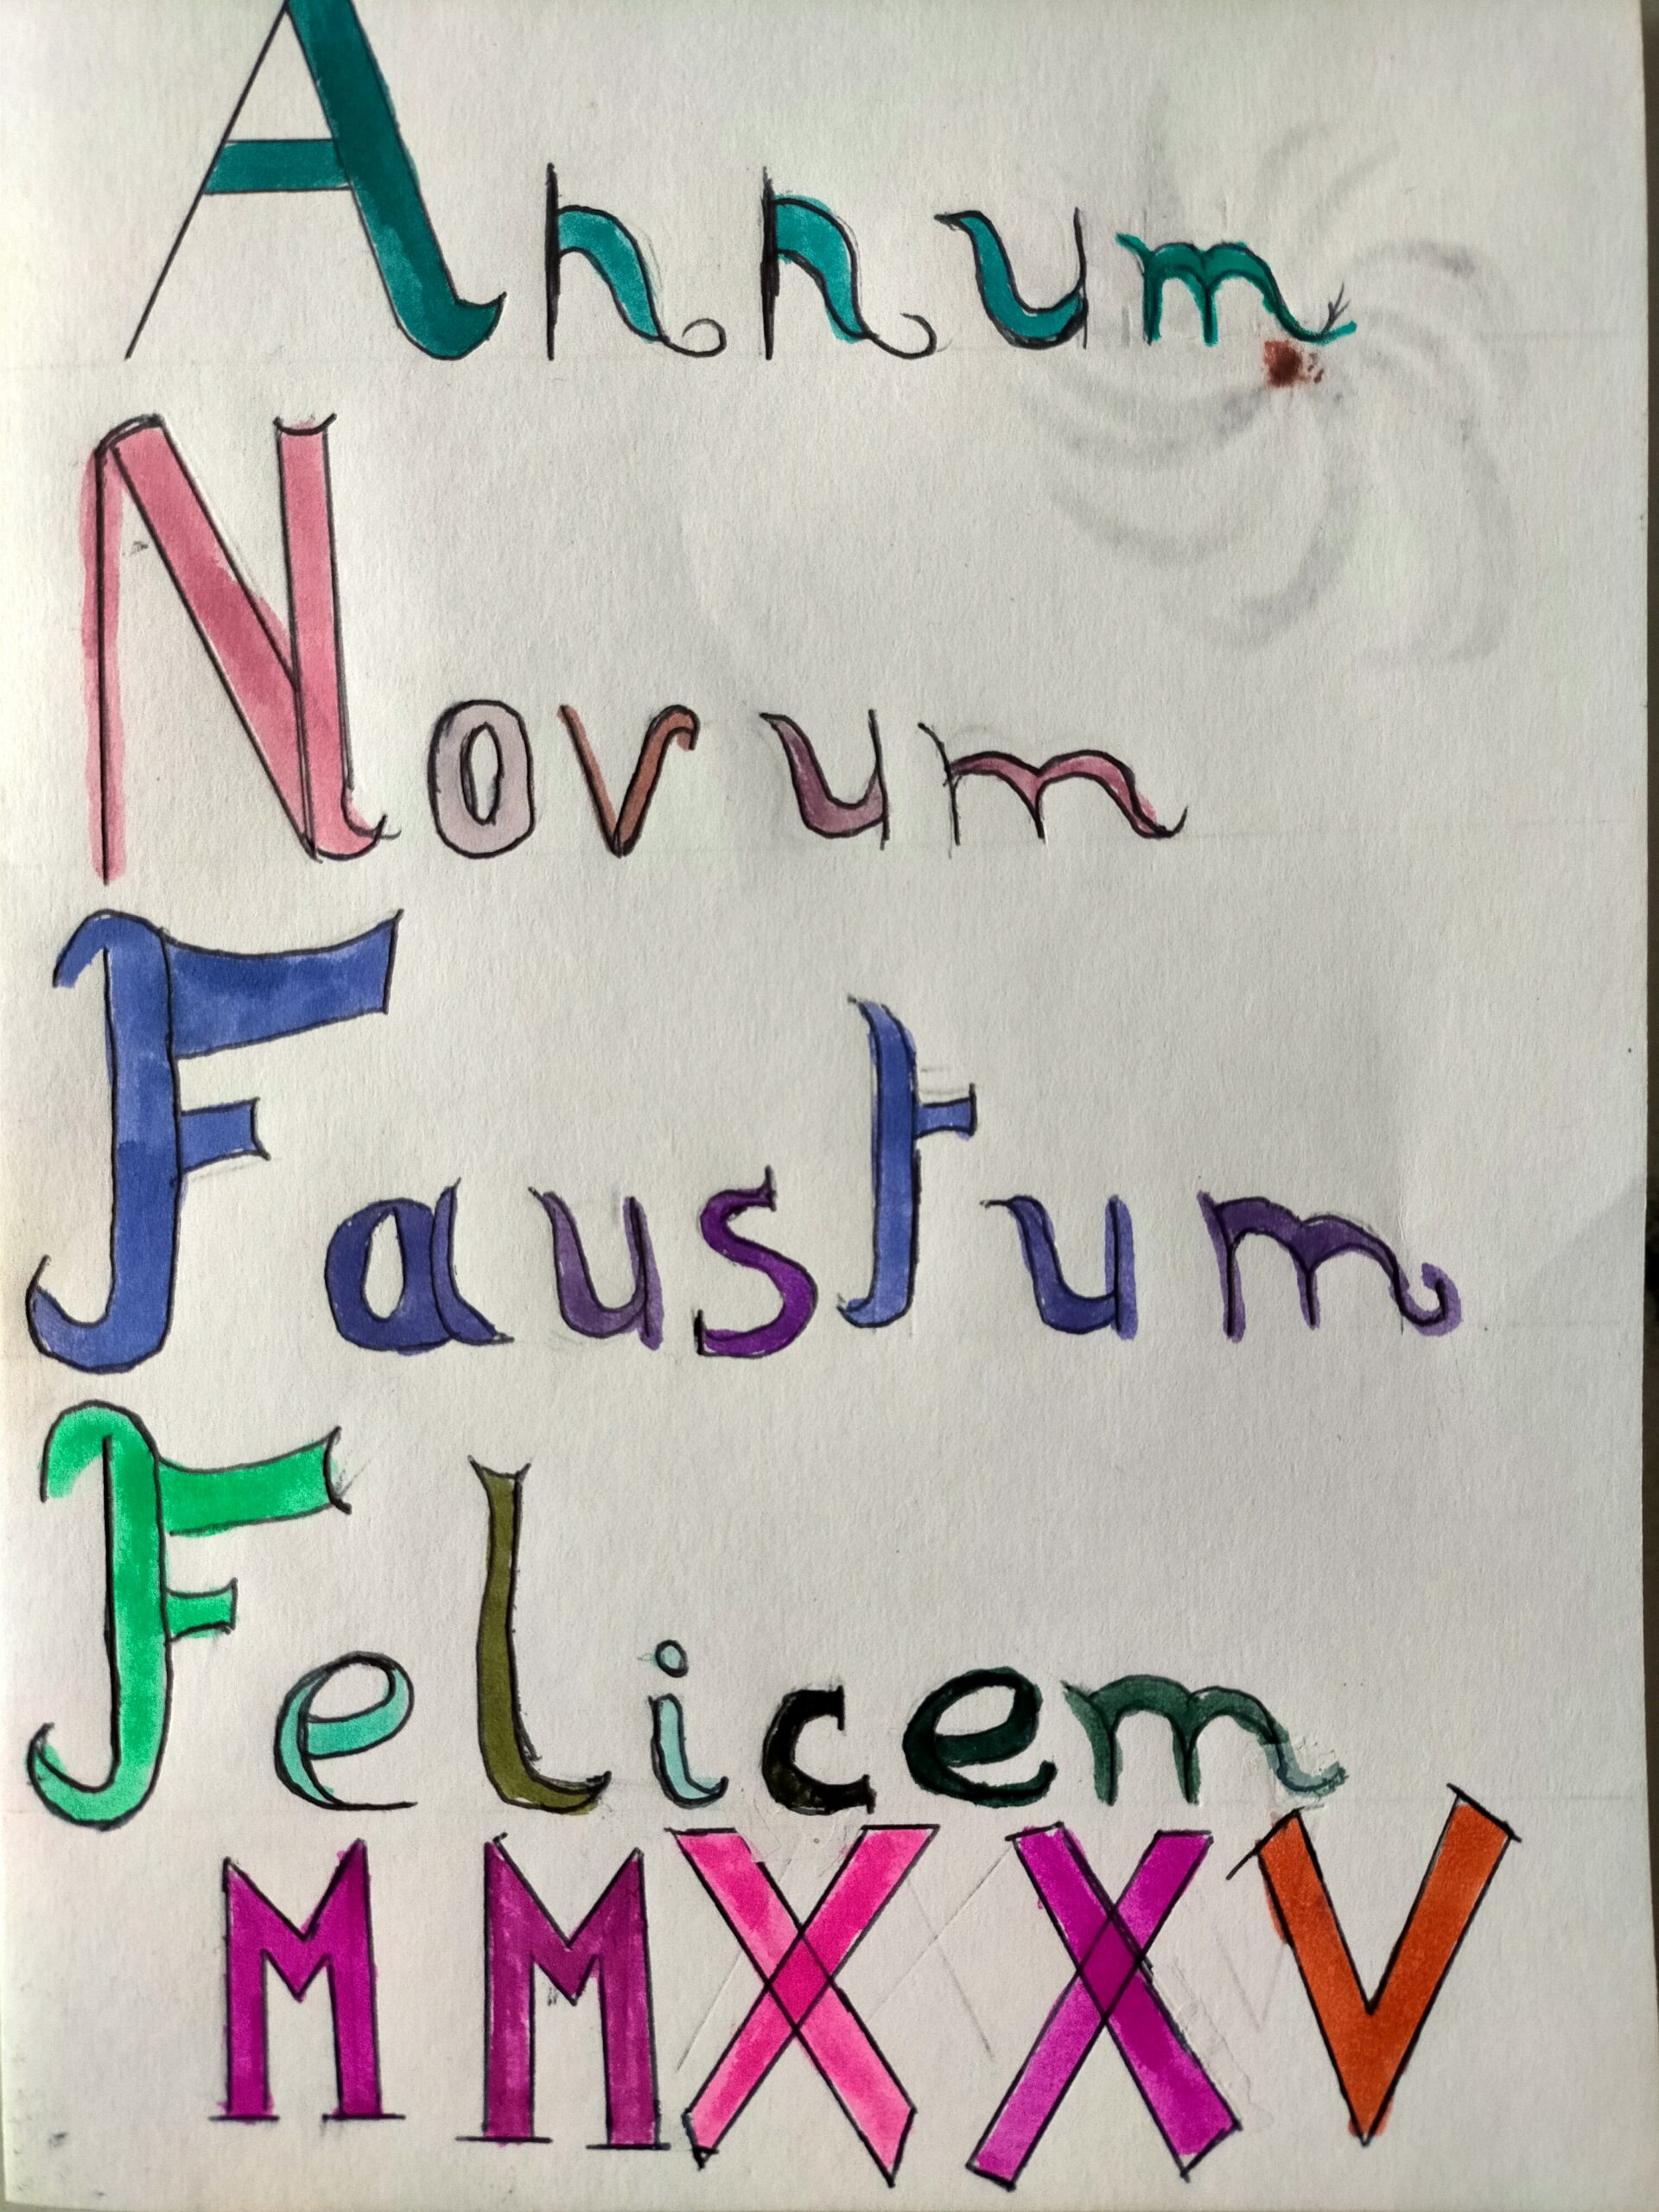 Annum
Novum
Faustum
Felicem
MMXXV